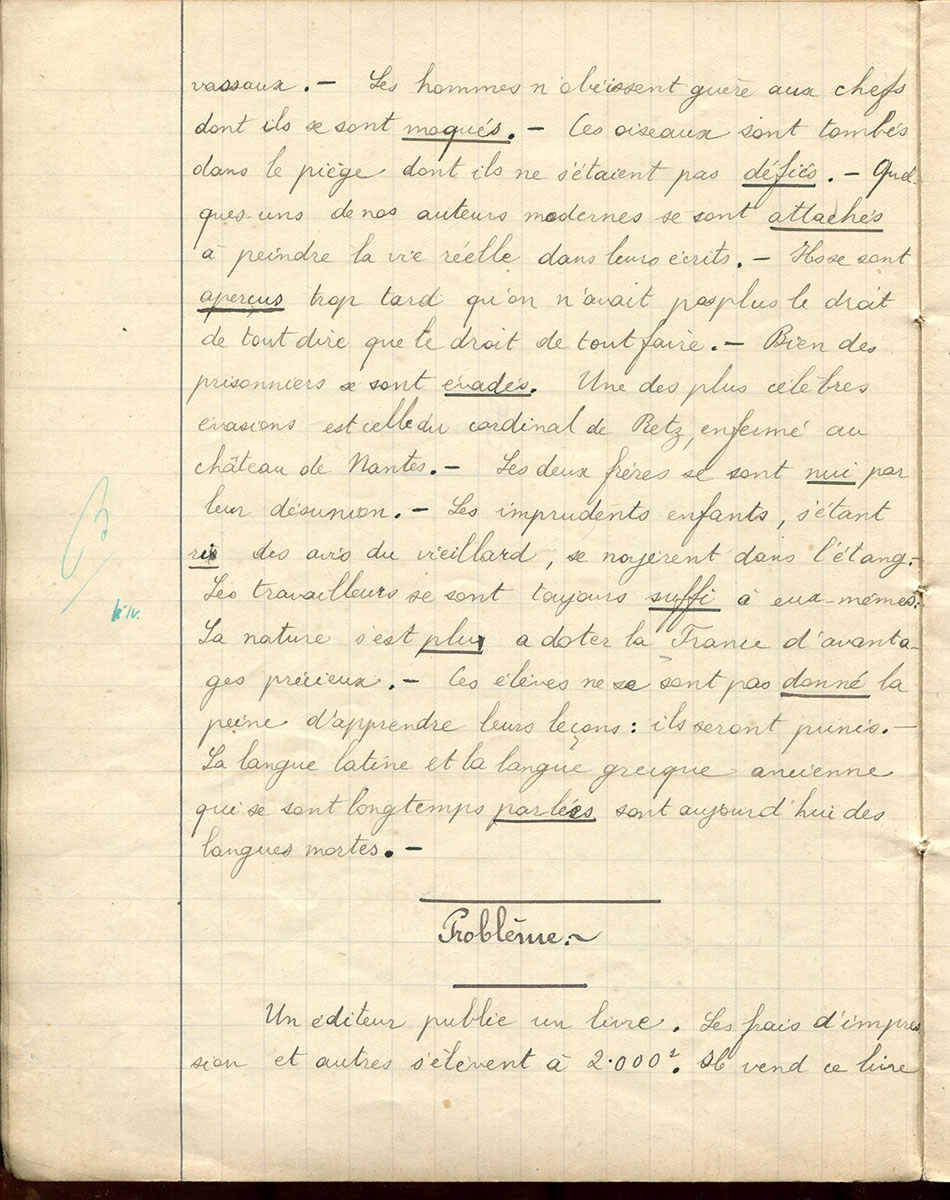 vassaux. — Les hommes n'obéissent guère aux chefs
dont ils se sont moqués. — Ces oiseaux sont tombés
dans le piège dont ils ne s'étaient pas défiés. — Quel-
ques-uns de nos auteurs modernes se sont attachés
à peindre la vie réelle dans leurs écrits. — Ils se sont
aperçus trop tard qu'on n'avait pas plus le droit
de tout dire que le droit de tout faire. — Bien des
prisonniers se sont évadés. Une des plus célèbres
évasions est celle du cardinal de Retz, enfermé au
château de Nantes. — Les deux frères se sont nui par
leur désunion. — Les imprudents enfants, s'étant
ris des avis du vieillard, se noyèrent dans l'étang. —
Les travailleurs se sont toujours suffi à eux-mêmes.
La nature s'est plu a doter la France d'avanta-
ges précieux. — Ces élèves ne se sont pas donné la
peine d'apprendre leurs leçons : ils seront punis. —
La langue latine et la langue grecque ancienne
qui se sont longtemps parlées sont aujourd'hui des
langues mortes. —
Problème. ~
Un éditeur publie un livre. Les frais d'impres
sion et autres s'élèvent à 2.000f. Il vend ce livre